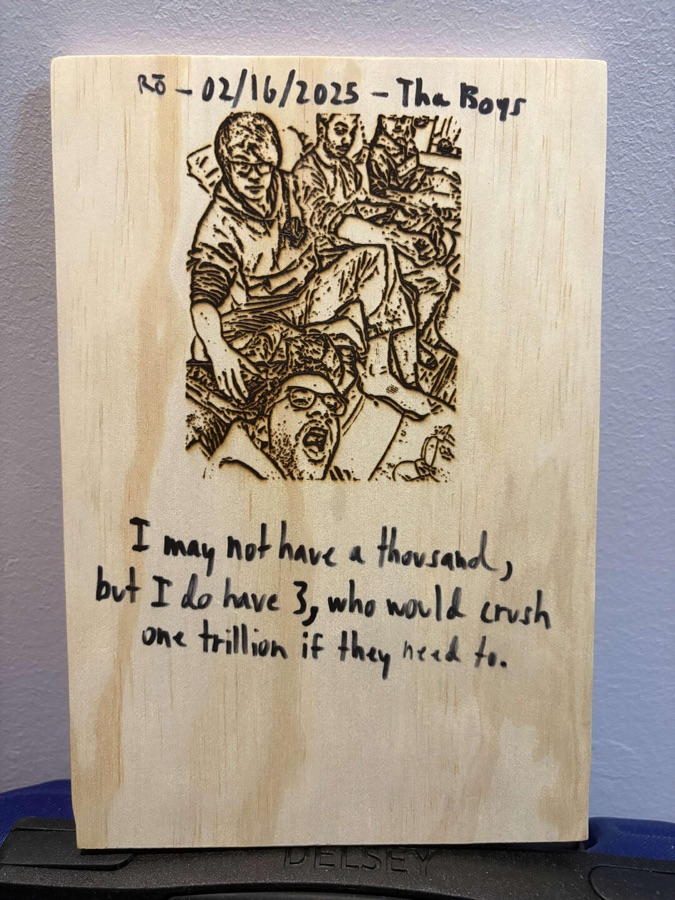 Rō - 02/16/2025 - Tha Boys
I may not have a thousand,
but I do have 3, who would crush
one trillion if they need to.
DELSEY